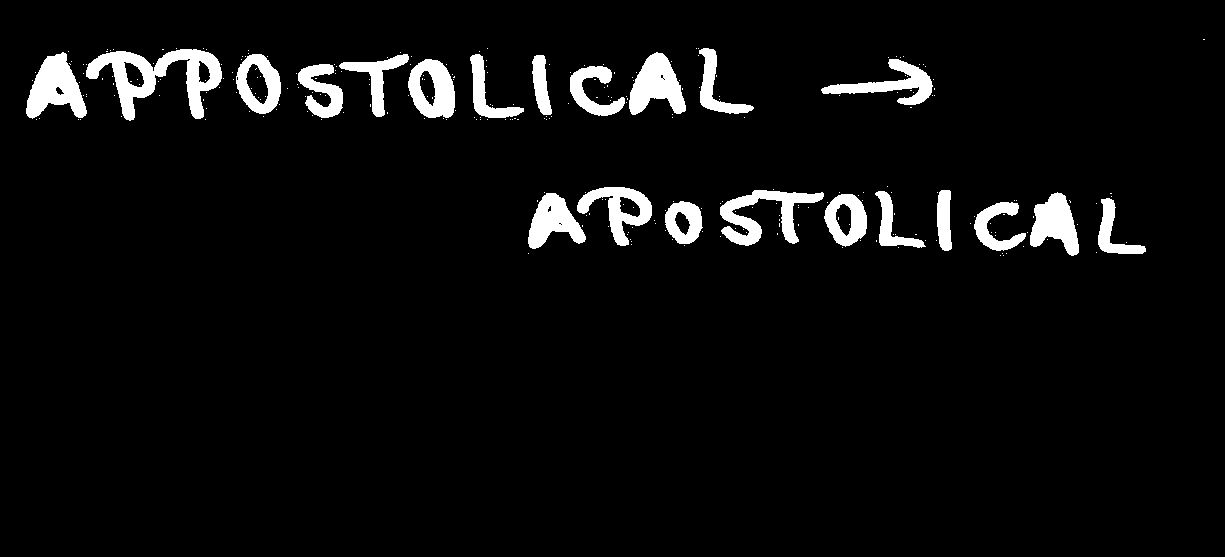 APPOSTOLICAL →
APOSTOLICAL